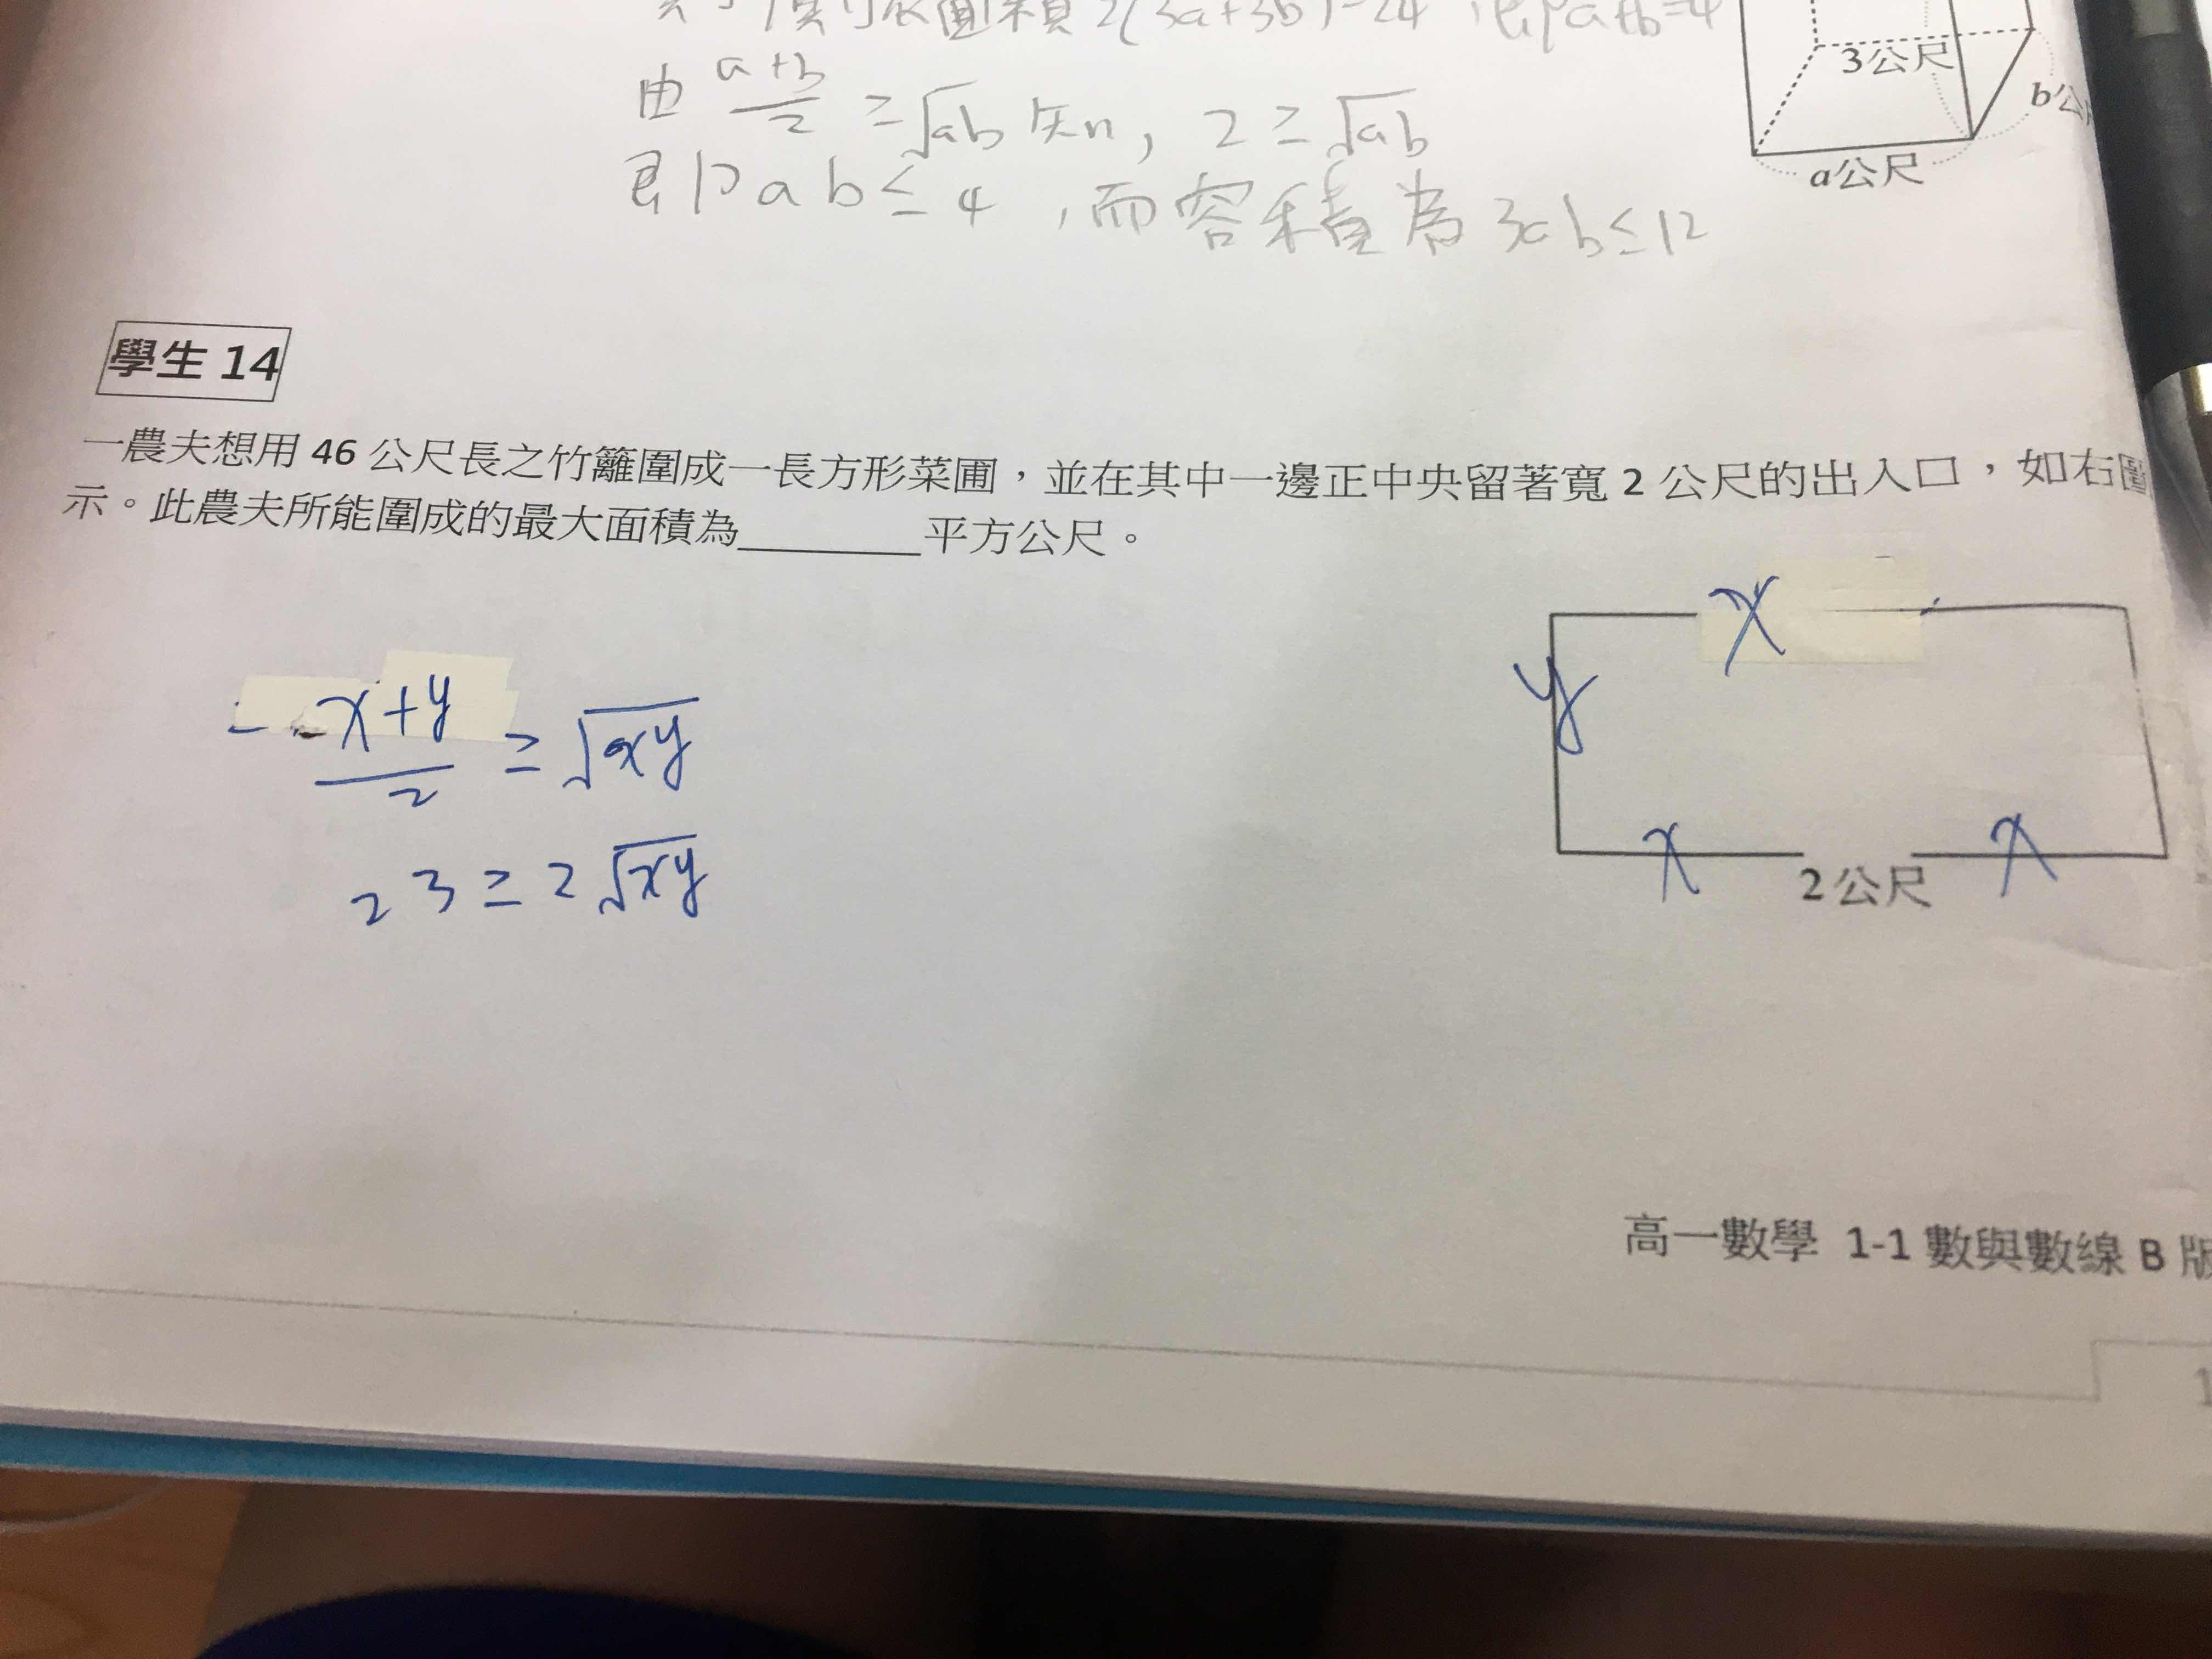 2(3a+3b)=24 a+b=4
由 a+b/2 ≥ √ab 知, 2 ≥ √ab
即 ab ≤ 4 ,而容積為 3ab ≤ 12
3公尺
b公
a公尺
學生 14
一農夫想用 46 公尺長之竹籬圍成一長方形菜圃,並在其中一邊正中央留著寬 2 公尺的出入口,如右圖
示。此農夫所能圍成的最大面積為________平方公尺。
x+y/2 ≥ √xy
23 ≥ 2√xy
x
y
x 2公尺 x
高一數學 1-1 數與數線 B 版
1